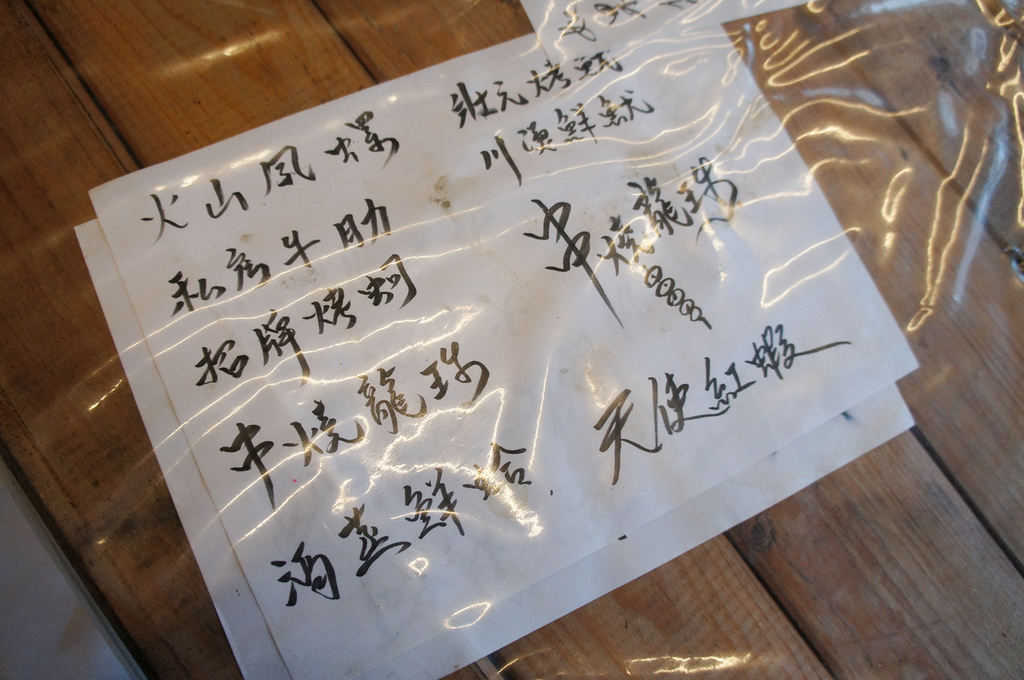 火山風螺
私房牛肋
招牌烤蚵
串燒龍珠
酒蒸鮮蛤
壯元烤蝦
川燙鮮魷
串燒龍珠
天使紅蝦